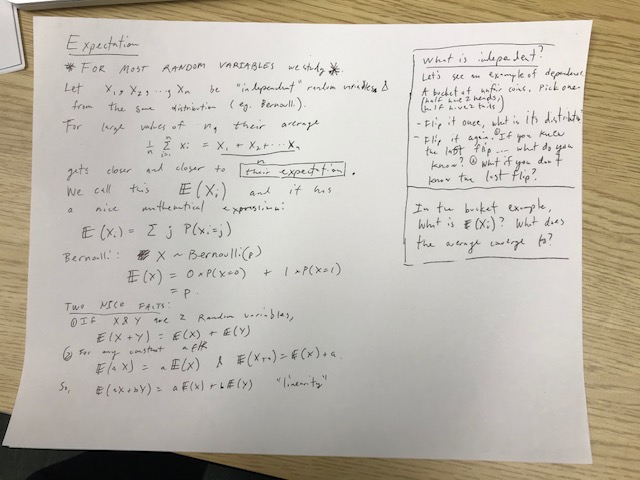 Expectation
* FOR MOST RANDOM VARIABLES we study *
Let X₁, X₂, ..., Xn be "independent" random variables &
from the same distribution (eg. Bernoulli).
For large values of n, their average
1/n Σ_{i=1}^{n} xi = X₁ + X₂ + ... Xn / n
gets closer and closer to their expectation.
We call this E(Xi) and it has
a nice mathematical expression:
E(Xi) = Σ j P(Xi=j)
Bernoulli: X ~ Bernoulli(p)
E(X) = 0×P(X=0) + 1×P(X=1)
= p.
TWO NICE FACTS:
① If X & Y are 2 Random variables,
E(X+Y) = E(X) + E(Y)
② For any constant a∈R
E(aX) = a E(X) & E(X+a) = E(X)+a.
So, E(aX+bY) = a E(X) + b E(Y) "linearity"
What is independent?
Let's see an example of dependence
A bucket of unfair coins, pick one-
(half have 2 heads,
half have 2 tails)
- Flip it once, what is its distribution
- Flip it again. ① If you knew
the last flip... what do you
know? ② What if you don't
know the last flip?
In the bucket example,
What is E(Xi)? What does
the average converge to?